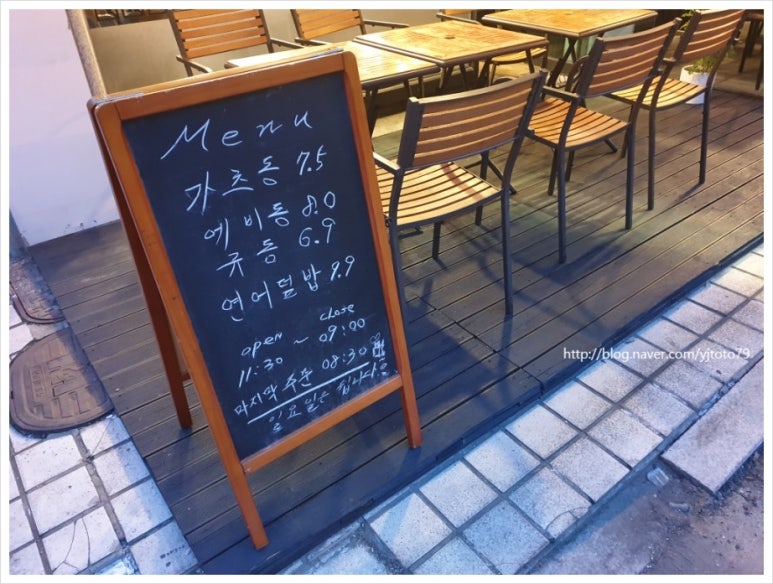 Menu
가츠동 7.5
에비동 8.0
규동 6.9
연어덮밥 9.9
open close
11:30 ~ 09:00
마지막 주문 08:30
일요일은 쉽니다
http://blog.naver.com/yjtoto79